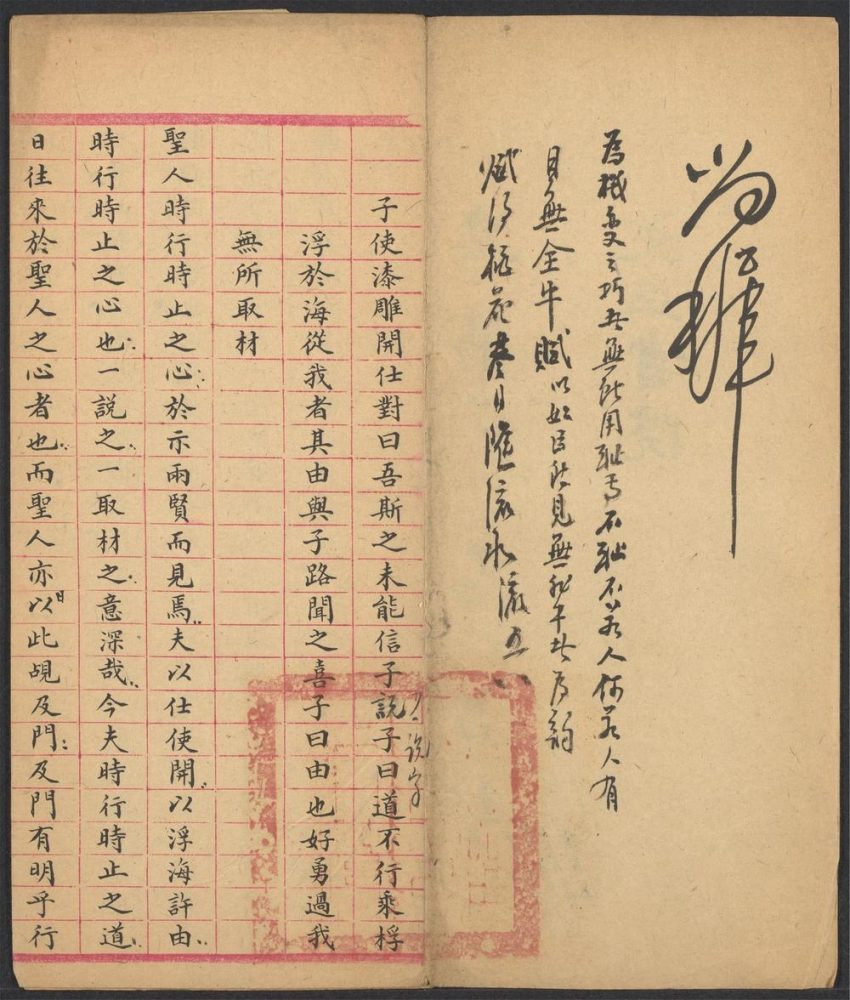 為機變之巧者無所用恥焉不恥不若人何若人有
目無全牛賦以如臣所見無非牛者為韻
賦得
一說字
子使漆雕開仕對曰吾斯之未能信子說子曰道不行乘桴
浮於海從我者其由與子路聞之喜子曰由也好勇過我
無所取材
聖人時行時止之心於示兩賢而見焉夫以仕使開以浮海許由
時行時止之心也一說之一取材之意深哉今夫時行時止之道
日往來於聖人之心者也而聖人亦以日此覘及門及門有明乎行